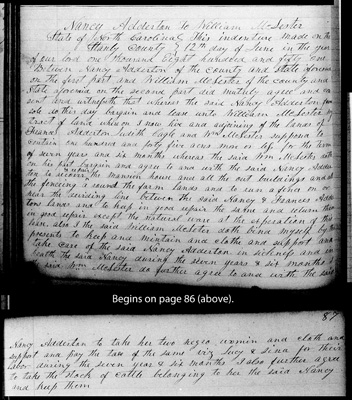 Nancy Adderton to William McLester
State of North Carolina This indenture made on the
Stanly County } 12th day of June in the year
of our lord one thousand Eight hundred and fifty one
Between Nancy Adderton of the County and State aforesaid
on the first part and William McLester of the county and
State aforesaid on the second part did mutuly agree and con
sent and witnesseth that whereas the said Nancy Adderton
do this day bargain and lease unto William McLester a
tract of land whereon I now live and adjoining of the lands of
Francis Adderton Judith Cagle and Wm McLester supposed to
contain one hundred and forty five acres more or less for the term
of seven years and six months whereas the said Wm McLester doth
on his part bargain and agree to and with the said Nancy Adder
ton to the mansion house and all the out buildings and all
the fencing around the farm lands and to run a fence on or
near the deviding line between the said Nancy & Francis Adder
tons lands and to keep in good repair the same and return
in good repair except the natural ware at the experation of this
lease also I the said William McLester doth bind myself by these
presents to keep and maintain and cloth and support and
take care of the said Nancy Adderton in sickness and in
health the said Nancy during the seven years & six months
I said Wm McLester do further agree to and with the said
Begins on page 86 (above).
87
Nancy Adderton to take her two negro women and cloth and
support and pay the taxes of the same viz Lucy & for their
labor during the seven years & six months I also further agree
to take the stock of Cattle belonging to her the said Nancy
and keep them